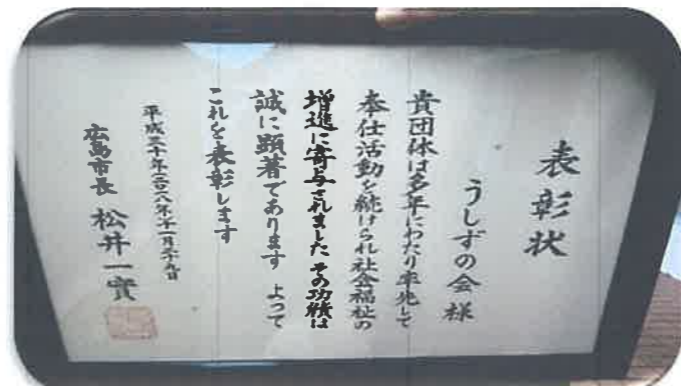 表彰状
うしずの会 様
貴団体は多年にわたり率先して
奉仕活動を続けられ社会福祉の
増進に寄与されました その功績は
誠に顕著であります よって
これを表彰します
平成三十年(二〇一八年)十一月二十九日
広島市長 松井一實